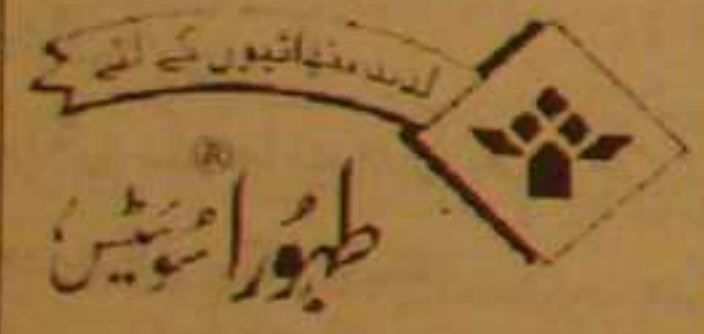 لذیذ مٹھائیوں کے لئے
طہُورا سُوئیٹس
®